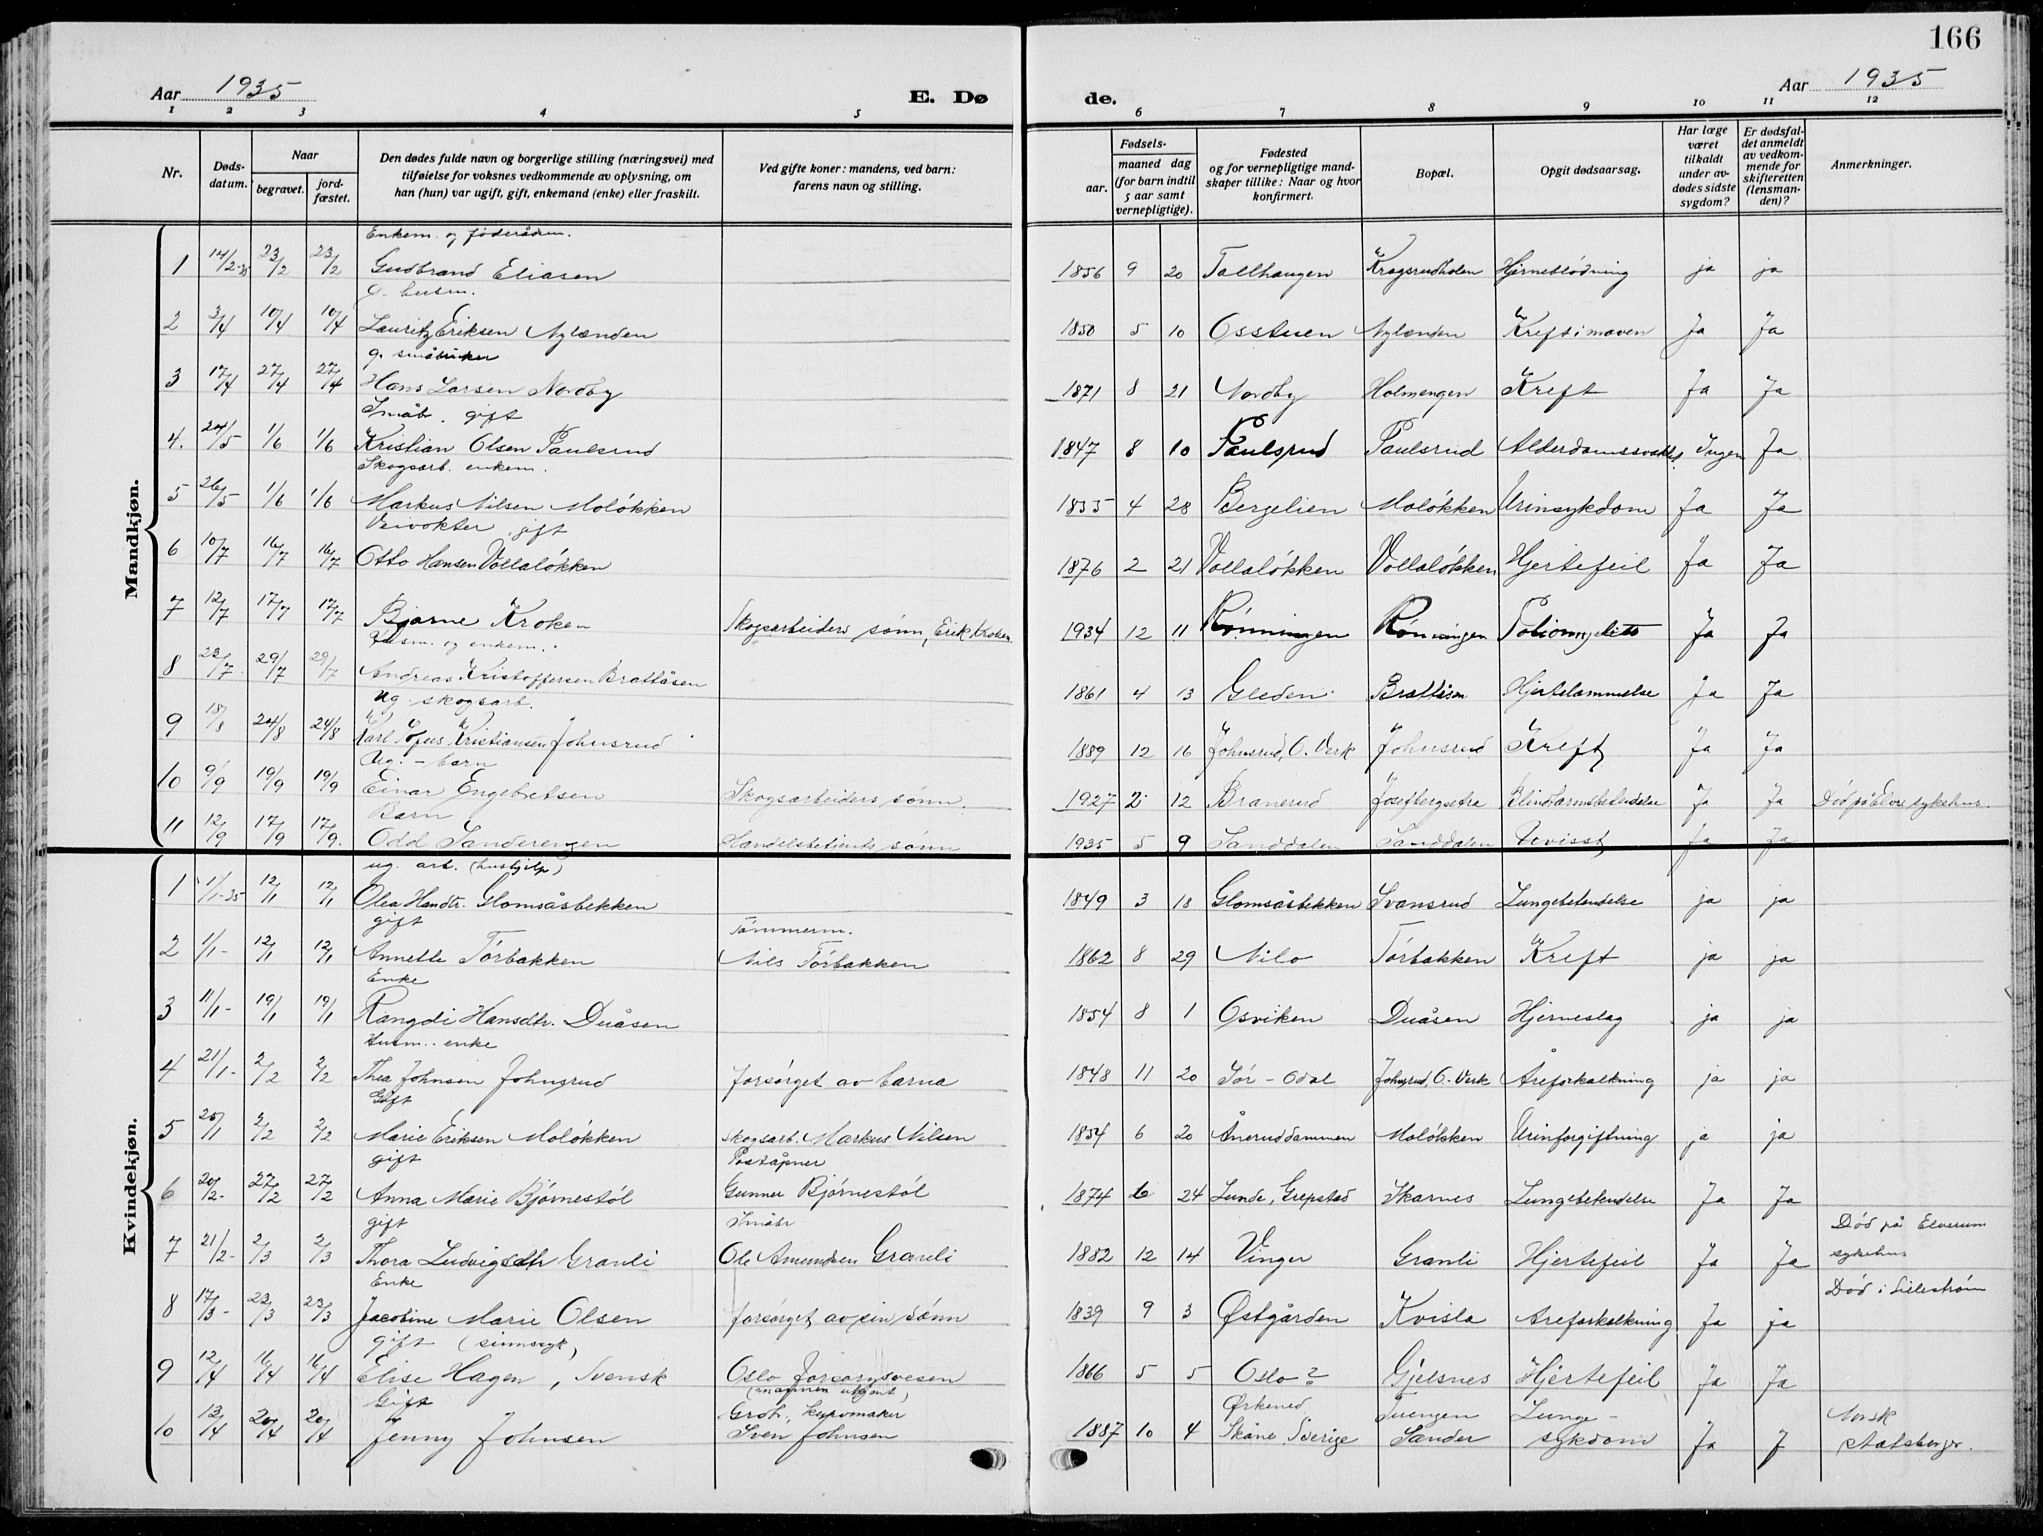 166
Aar 1935
E. Dø
de.
Aar 1935
1 2 3 4 5 6 7 8 9 10 11 12
Nr.
Døds-
datum.
Naar
begravet.
jord-
fæstet.
Den dødes fulde navn og borgerlige stilling (næringsvei) med
tilføielse for voksnes vedkommende av oplysning, om
han (hun) var ugift, gift, enkemand (enke) eller fraskilt.
Ved gifte koner: mandens, ved barn:
farens navn og stilling.
Fødsels-
aar.
maaned dag
(for barn indtil
5 aar samt
vernepligtige).
Fødested
og for vernepligtige mand-
skaper tillike: Naar og hvor
konfirmert.
Bopæl.
Opgit dødsaarsag.
Har læge
været
tilkaldt
under av-
dødes sidste
sygdom?
Er dødsfal-
det anmeldt
av vedkom-
mende for
skifteretten
(lensman-
den)?
Anmerkninger.
Mandkjøn.
Enkem. og føderådsm.
1 14/2-35 23/2 23/2 Gudbrand Eliasen 1856 9 20 Tallhaugen Kragsrudholen Hjerneblødning ja ja
g. husm.
2 3/4 10/4 10/4 Lauritz Eriksen Nylænden 1850 5 10 Osstuen Nylænden Kreft i maven Ja Ja
g. småbruker
3 17/4 27/4 27/4 Hans Larsen Nordby 1871 8 21 Nordby Holmengen Kreft Ja Ja
Småbr. gift
4. 24/5 1/6 1/6 Kristian Olsen Paulsrud 1847 8 10 Paulsrud Paulsrud Ingen Ja
Skogsarb. enkem.
5 26/5 1/6 1/6 Markus Nilsen Moløkken 1855 4 28 Bergelien Moløkken Urinsykdom Ja Ja
Veivokter gift
6 10/7 16/7 16/7 Otto Hansen Vollaløkken 1876 2 21 Vollaløkken Vollaløkken Hjertefeil Ja Ja
7 12/7 17/7 17/7 Bjarne Kroken Skogsarbeiders sønn, Erik Kroken 1934 12 11 Rønningen Rønningen Poliomyelitt Ja Ja
Husm. og enkem.
8 23/7 29/7 29/7 Andreas Kristoffersen Brattåsen 1861 4 13 Gleden Brattåsen Hjertelammelse Ja Ja
Ug. skogsarb.
9 18/8 24/8 24/8 Karl Sofus Kristiansen Johnsrud 1889 12 16 Johnsrud, O. Verk Johnsrud Kreft Ja Ja
Ug. - barn
10 9/9 19/9 19/9 Einar Engebretsen Skogsarbeiders sønn 1927 2 12 Branerud Josefbergsetra Blindtarmsbetendelse Ja Ja Død på Elver. sykehus.
Barn
11 12/9 17/9 17/9. Odd Sanderengen Handelsbetjents sønn 1935 5 9 Sanddalen Sanddalen Uvisst Ja Ja
Kvindekjøn.
ug. arb. (hushjelp)
1 1/1-35 12/1 12/1 Olea Hansdtr. Glomsåsbekken 1849 3 18 Glomsåsbekken Svansrud Lungebetendelse ja ja
gift Tømmerm.
2 1/1- 12/1 12/1 Annette Tørbakken Nils Tørbakken 1862 8 29 Nilo Tørbakken Kreft ja ja
Enke
3 11/1- 19/1 19/1 Rangdi Hansdtr. Duåsen 1854 8 1 Osviken Duåsen Hjerneslag ja ja
Husm. enke
4 21/1- 2/2 2/2 Thea Johnsen Johnsrud forsørget av barna 1848 11 20 Sør-Odal Johnsrud, O. Verk Åreforkalkning ja ja
Gift
5 25/1 2/2 2/2 Marie Eriksen Moløkken skogsarb. Markus Nilsen 1854 6 20 Åneruddammen Moløkken Urinforgiftning ja ja
gift Poståpner
6 20/2- 27/2 27/2 Anna Marie Bjørnestøl Gunner Bjørnestøl 1874 6 24 Lunde, Grepstad Skarnes Lungebetendelse Ja Ja
gift Småbr
7 21/2- 2/3 2/3 Thora Ludvigsdtr Granli Ole Amundsen Granli 1882 12 14 Vinger Granli Hjertefeil Ja Ja Død på Elverum
sykehus
Enke
8 17/3- 23/3 23/3 Jacobine Marie Olsen forsørget av sin sønn 1839 9 3 Østgården Kvisla Åreforkalkning Ja ja Død i Lillestrøm
gift (sinnssyk)
9 12/4 16/4 16/4 Elise Hagen, Svensk Oslo forsorgsvesen 1866 5 5 Oslo? Gjelsnes Hjertefeil Ja Ja
Gift (mannen utgent)
Grob., kurvmaker
10 13/4 20/4 20/4 Jenny Johnsen Sven Johnsen 1887 10 4 Ørkened Skåne Sverige Tuengen Sander Lunge-
sykdom Ja J Norsk
statsborger.